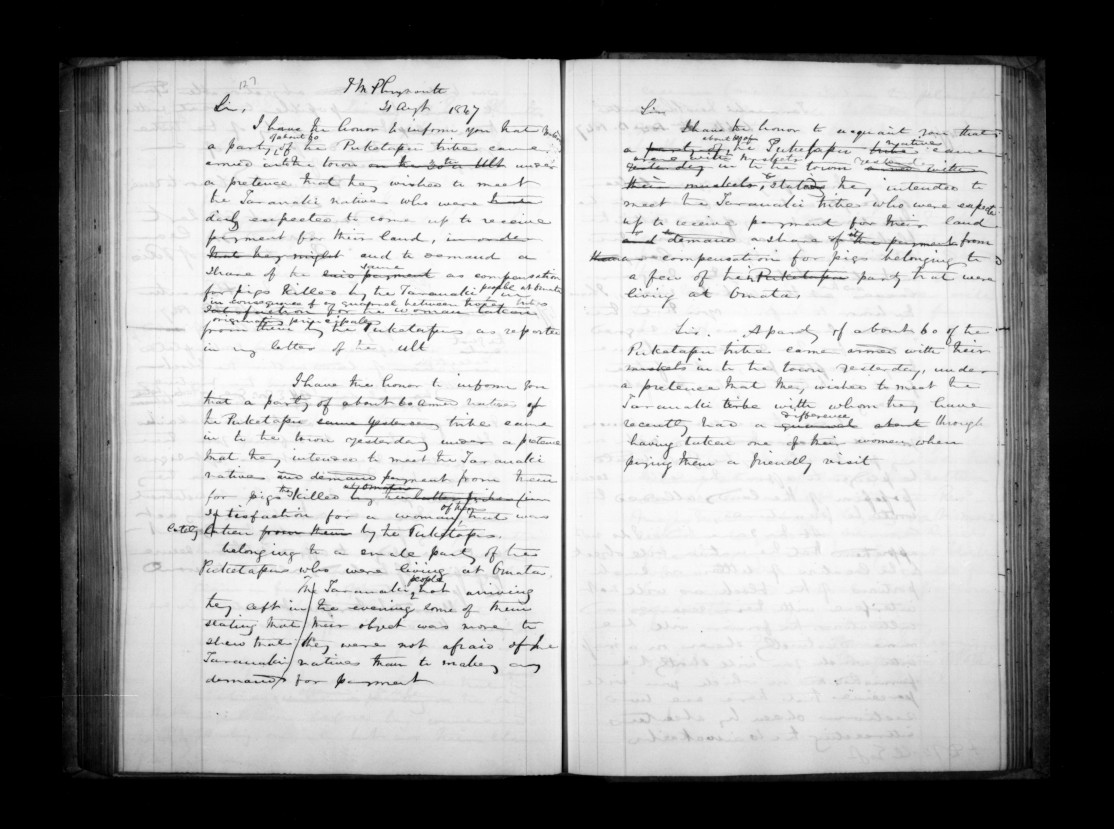 127
N Plymouth
Sir, 31 Augt 1847
I have the honor to inform you that
a party of about 60 of the Puketapu tribe came
armed into the town on the 30th Ult under
a pretence that they wished to meet
the Taranaki natives who were
daily expected to come up to receive
payment for their land, in order
that they might and to demand a
share of the said payment same as compensation
for pigs killed by the Taranaki people at Omata
in consequence of a quarrel between these tribes
satisfaction for the woman taken
originating principally
from them by the Puketapus as reported
in my letter of the ult
I have the honor to inform you
that a party of about 60 armed natives of
the Puketapu same yesterday tribe came
in to the town yesterday under a pretence
that they intended to meet the Taranaki
natives and demand payment from them
for pigs they killed by the latter tribe (in
satisfaction for a woman of theirs that was
lately taken from them by the Puketapus.
belonging to a small party of the
Puketapus who were living at Omata.
The Taranaki people not arriving
they left in the evening some of them
stating that their object was more to
shew that they were not afraid of the
Taranaki natives than to making any
demands for payment
Sir
I have the honor to acquaint you that
a party of about 60 of the Puketapu tribe natives came
armed with muskets
yesterday in to the town yesterday armed with
their muskets, & stated they intended to
meet the Taranaki tribes who were expected
up to receive payment for their land
and to demand a share of the payment from
them as compensation for pigs belonging to
a few of the Puketapu party that were
living at Omata
Sir. A party of about 60 of the
Puketapu tribe came armed with their
muskets in to the town yesterday, under
a pretence that they wished to meet the
Taranaki tribe with whom they have
recently had a difference
quarrel about through
having taken one of their women when
paying them a friendly visit